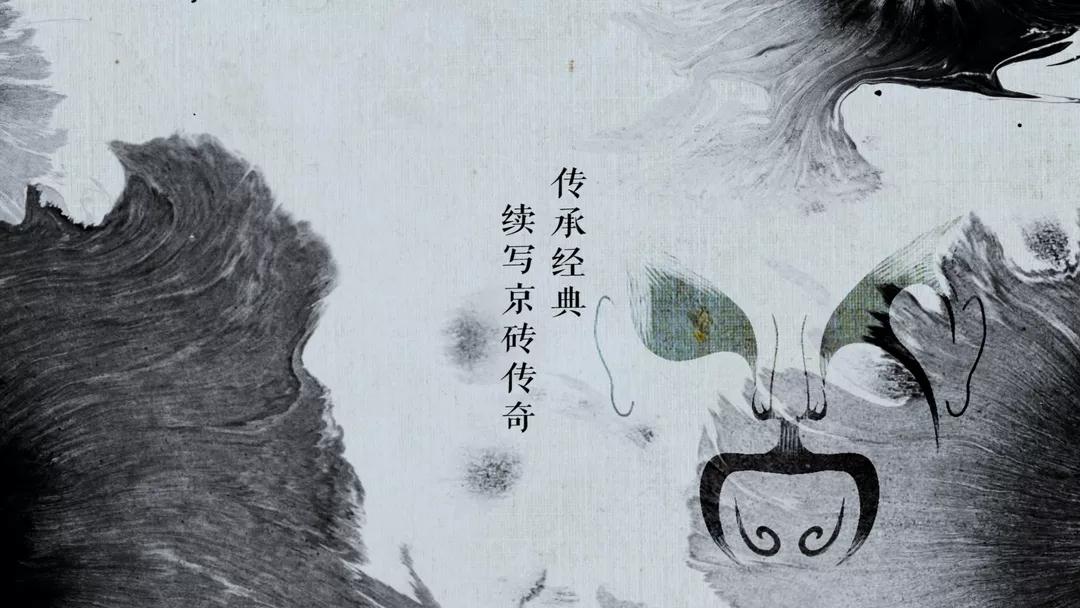 传承经典
续写京砖传奇